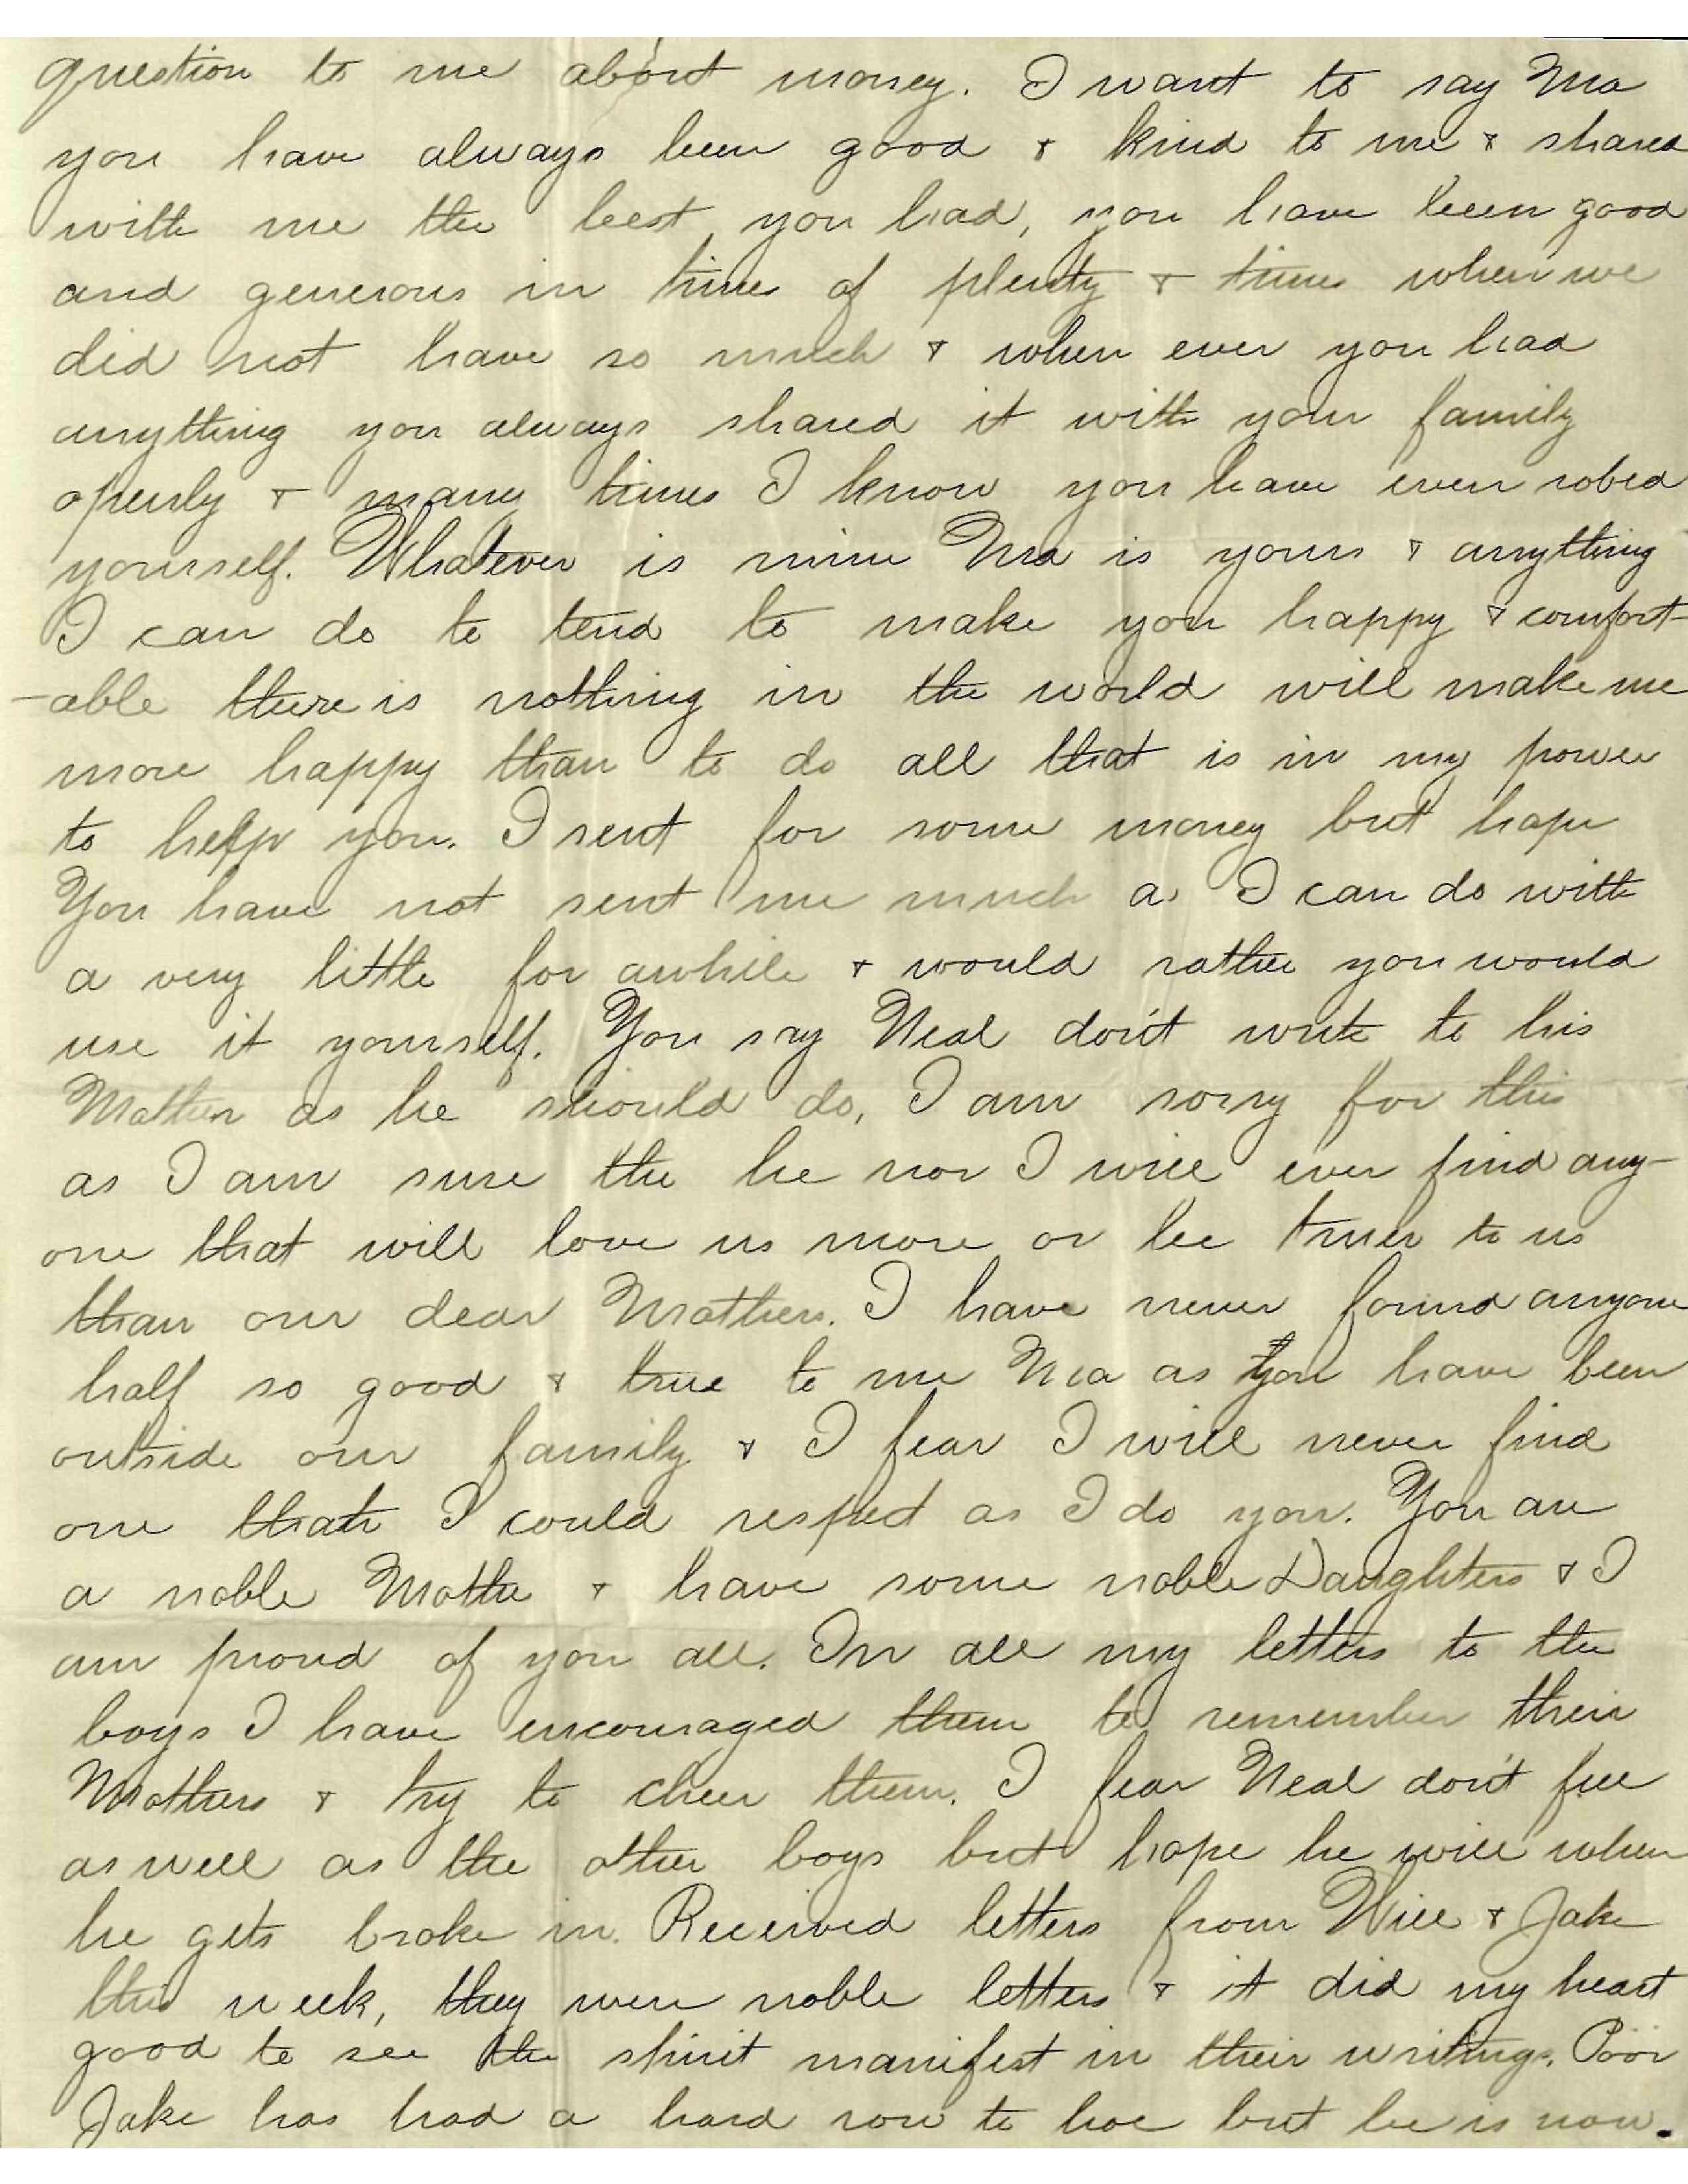 question to me about money. I want to say Ma
you have always been good & kind to me & shared
with me the best you had, you have been good
and generous in times of plenty & times when we
did not have so much & when ever you had
anything you always shared it with your family
openly & many times I know you have even robed
yourself. Whatever is mine Ma is yours & anything
I can do to tend to make you happy & comfort-
-able there is nothing in the world will make me
more happy than to do all that is in my power
to help you. I sent for some money but hope
You have not sent me much as I can do with
a very little for awhile & would rather you would
use it yourself. You say Neal don't write to his
Mother as he should do, I am sorry for this
as I am sure the he nor I will ever find any-
one that will love us more or be truer to us
than our dear Mothers. I have never found anyone
half so good & true to me Ma as you have been
outside our family & I fear I will never find
one that I could respect as I do you. You are
a noble Mother & have some noble Daughters & I
am proud of you all. In all my letters to the
boys I have encouraged them to remember their
Mothers & try to cheer them. I fear Neal don't feel
as well as the other boys but hope he will when
he gets broke in. Received letters from Will & Jake
this week, they were noble letters & it did my heart
good to see the spirit manifest in their writings. Poor
Jake has had a hard row to hoe but he is now.